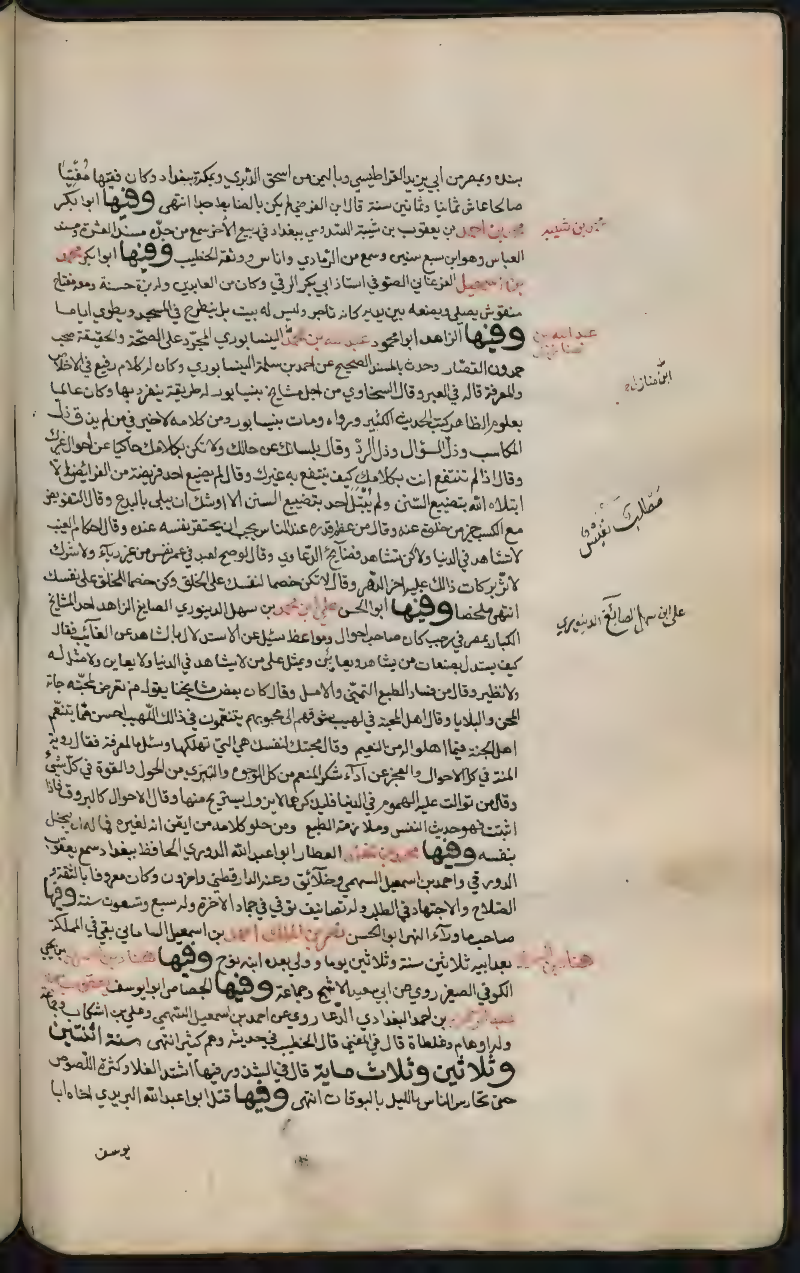 ببلده وبمصر من ابي يزيد القراطيسي وباليمن من اسحق الدبري وبمكة وبغداد وكان فقيها مفتيا
صالحا عاش ثمانيا وثمانين سنة قال ابن الفرضي لم يكن بالضابط جدا انتهى وفيها ابو بكر
محمد بن احمد بن يعقوب بن شيبة السدوسي ببغداد في ربيع الآخر سمع من جده مسند العشرة ومسند
محمد بن شيبه
العباس وهو ابن سبع سنين وسمع من الرمادي واناس ووثقه الخطيب وفيها ابو بكر محمد
بن اسمعيل الفرغاني الصوفي استاذ ابي بكر الرقي وكان من العابدين وله بزة حسنة ومعه مفتاح
منقوش يصلي ويضعه بين يديه كانه تاجر وليس له بيت بل ينطرح في المسجد ويطوي اياما
وفيها الزاهد ابو محمود عبد الله بن محمد النيسابوري المجرد على الصحة والحقيقة صحب
عبد الله بن منازل
حمدون القصار وحدث بالمسند الصحيح عن احمد بن سلمة النيسابوري وكان له كلام رفيع في الاخلاص
ابن منازل
والمعرفة قاله في العبر وقال السخاوي من اجل مشايخ نيسابور له طريقة ينفرد بها وكان عالما
بعلوم الظاهر كتب الحديث الكثير ورواه ومات بنيسابور ومن كلامه لا خير في من لم يذق ذل
المكاسب وذل السؤال وذل الرد وقال بلسانك عن حالك ولا تكن بكلامك حاكيا عن احوال غيرك
وقال اذا لم تنتفع انت بكلامك كيف ينتفع به غيرك وقال لم يضيع احد فريضة من الفرائض الا
ابتلاه الله بتضييع السنن ولم يبتل احد بتضييع السنن الا اوشك ان يبلى بالبدع وقال التفويض
مع الكسب خير من خلوه عنه وقال من عظم قدره عند الناس يجب ان يحتقر نفسه عنده وقال احكام الغيب
مطالب نفيس
لا تشاهد في الدنيا ولكن تشاهد فضايح الدعاوي وقال لو صح لعبد في عمره نفس من غير رياء ولا شرك
لاثر بركات ذلك عليه اخر الدهر وقال لا تكن خصما لنفسك على الخلق وكن خصما للخلق على نفسك
انتهى ملخصا وفيها ابو الحسن علي ابن محمد بن سهل الدينوري الصايغ الزاهد احد المشايخ
علي ابن سهل الصائغ الدينوري
الكبار بمصر في رجب كان صاحب احوال ومواعظ سئل عن الاستدلال بالشاهد عن الغائب فقال
كيف يستدل بصفات من يشاهد ويعاين ويمثل على من لا يشاهد في الدنيا ولا يعاين ولا مثل له
ولا نظير وقال من فساد الطبع التمني والامل وقال كان بعض مشايخنا يقول من تعرض لمحبته جاءته
المحن والبلايا وقال اهل المحبة في لهيب شوقهم الى محبوبهم يتنعمون في ذلك اللهيب احسن مما يتنعم
اهل الجنة فيما اهلوا له من النعيم وقال محبتك لنفسك هي التي تهلكها وسئل ما المعرفة فقال روية
المنة في كل الاحوال والعجز عن اداء شكر المنعم من كل الوجوه والتبري من الحول والقوة في كل شيء
وقال من توالت عليه الهموم في الدنيا فليذكر هما لا يزول يستريح منها وقال الاحوال كالبروق فاذا
اثبتت فهو حديث النفس وملازمة الطبع ومن حلو كلامه من ايقن انه لغيره فما له ان يبخل
بنفسه وفيها محمد بن مخلد العطار ابو عبد الله الدوري الحافظ ببغداد سمع يعقوب
الدورقي واحمد بن اسمعيل السهمي وخلائق وعنه الدارقطني واخرون وكان معروفا بالثقة و
الصلاح والاجتهاد في الطلب وله تصانيف توفي في جماد الاخرة وله سبع وتسعون سنة وفيها
صاحب ما وراء النهر ابو الحسن نصر بن الملك احمد بن اسمعيل الساماني بقي في المملكة
بعد ابيه ثلاثين سنة وثلاثين يوما وولي بعده ابنه نوح وفيها هناد بن السري بن يحيى
هناد بن السري
الكوفي الصغير روى عن ابي سعيد الاشج وجماعة وفيها الجصاص ابو يوسف يعقوب بن
عبد الرحمن بن احمد البغدادي الدعا روى عن احمد بن اسمعيل السهمي وعلي بن اشكاب وجماعة
وله اوهام وغلطات قال في المغني قال الخطيب في حديثه وهم كثير انتهى سنة اثنتين
وثلاثين وثلاث ماية قال في الشذور فيها اشتد الغلا وكثرت اللصوص
حتى تحارس الناس بالليل بالبوقات انتهى وفيها قتل ابو عبد الله البريدي اخاه ابا
يوسف